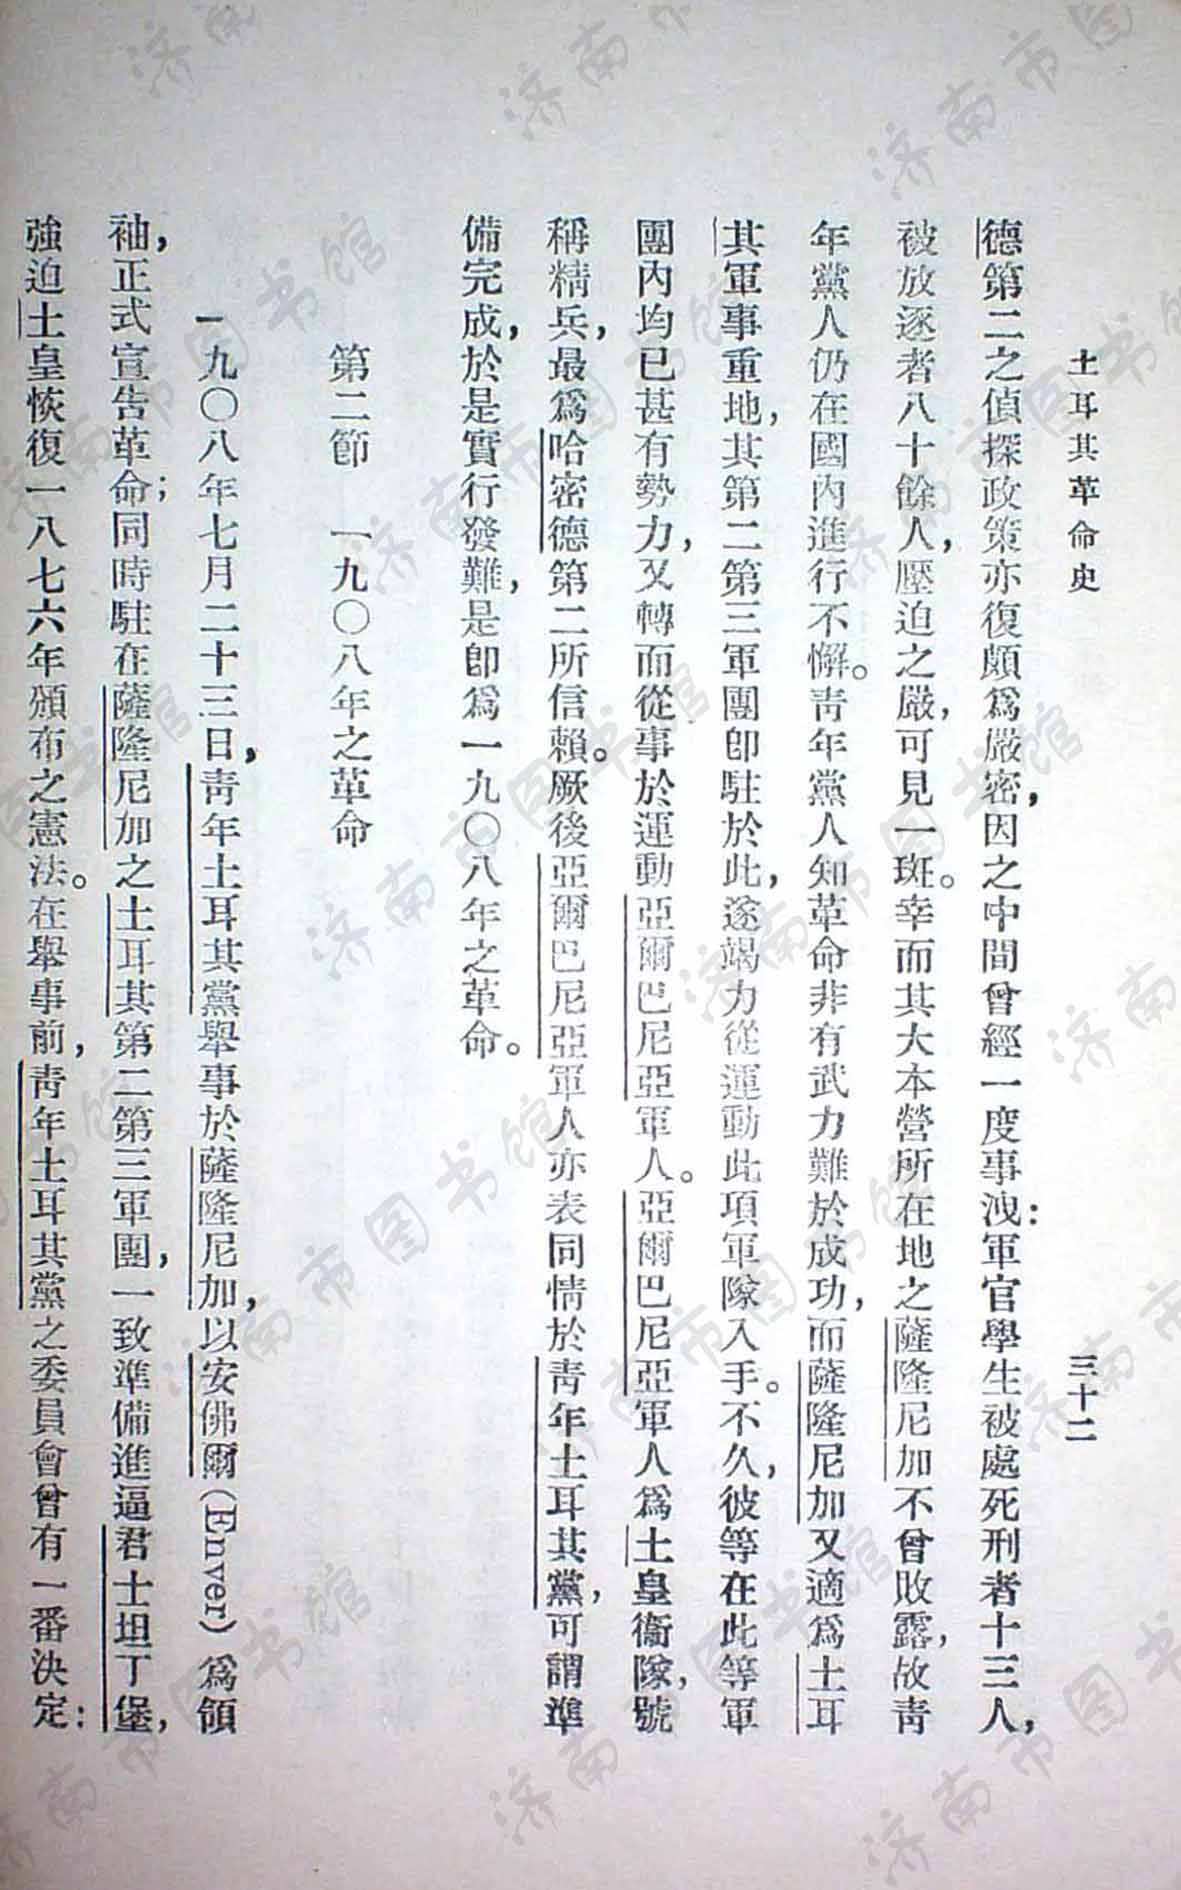 土耳其革命史
三十二
德第二之偵探政策亦復頗爲嚴密,因之中間曾經一度事洩:軍官學生被處死刑者十三人,
被放逐者八十餘人,壓迫之嚴,可見一斑。幸而其大本營所在地之薩隆尼加不曾敗露,故靑
年黨人仍在國內進行不懈。靑年黨人知革命非有武力難於成功,而薩隆尼加又適爲土耳
其軍事重地,其第二第三軍團卽駐於此,遂竭力從運動此項軍隊入手。不久,彼等在此等軍
團內均已甚有勢力,又轉而從事於運動亞爾巴尼亞軍人。亞爾巴尼亞軍人爲土皇衞隊,號
稱精兵,最爲哈密德第二所信賴。厥後亞爾巴尼亞軍人亦表同情於靑年土耳其黨,可謂準
備完成,於是實行發難,是卽爲一九〇八年之革命。
第二節　一九〇八年之革命
一九〇八年七月二十三日,靑年土耳其黨舉事於薩隆尼加,以安佛爾(Enver)爲領
袖,正式宣告革命;同時駐在薩隆尼加之土耳其第二第三軍團,一致準備進逼君士坦丁堡,
強迫土皇恢復一八七六年頒布之憲法。在舉事前,靑年土耳其黨之委員會曾有一番決定:
济南市图书馆